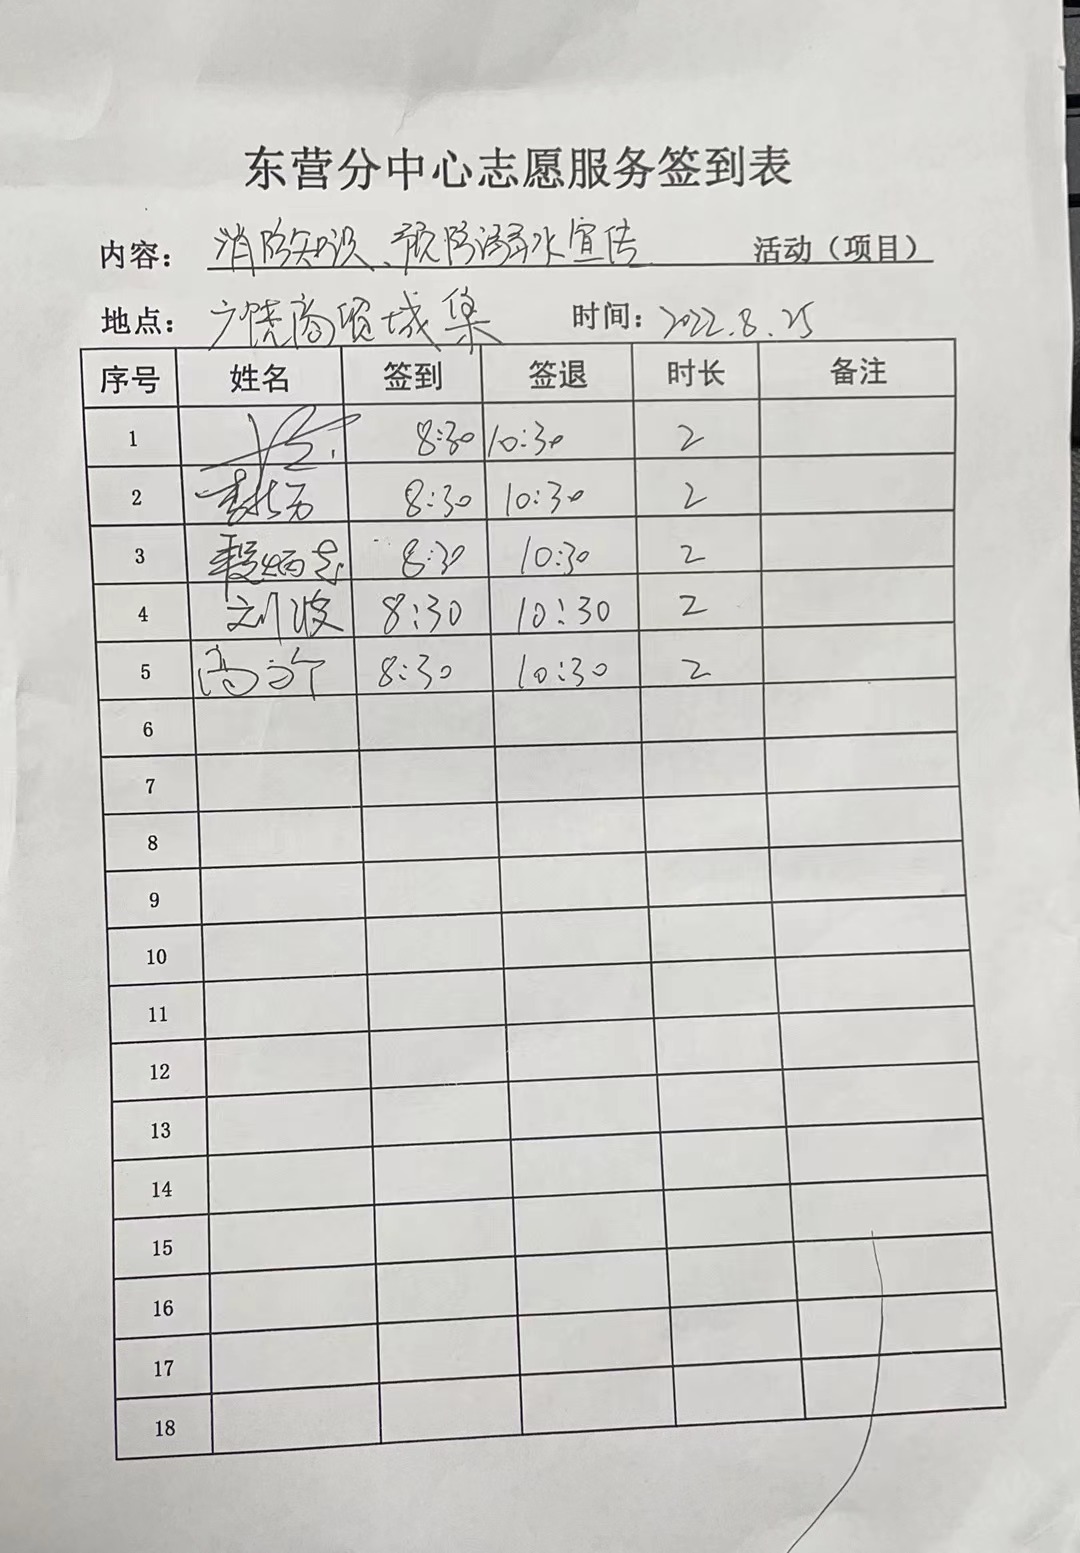 东营分中心志愿服务签到表
内容： 消防知识、预防溺水宣传 活动（项目）
地点： 广饶商贸城集 时间：2022.8.25
序号 姓名 签到 签退 时长 备注
1 8:30 10:30 2
2 8:30 10:30 2
3 8:30 10:30 2
4 刘波 8:30 10:30 2
5 8:30 10:30 2
6
7
8
9
10
11
12
13
14
15
16
17
18